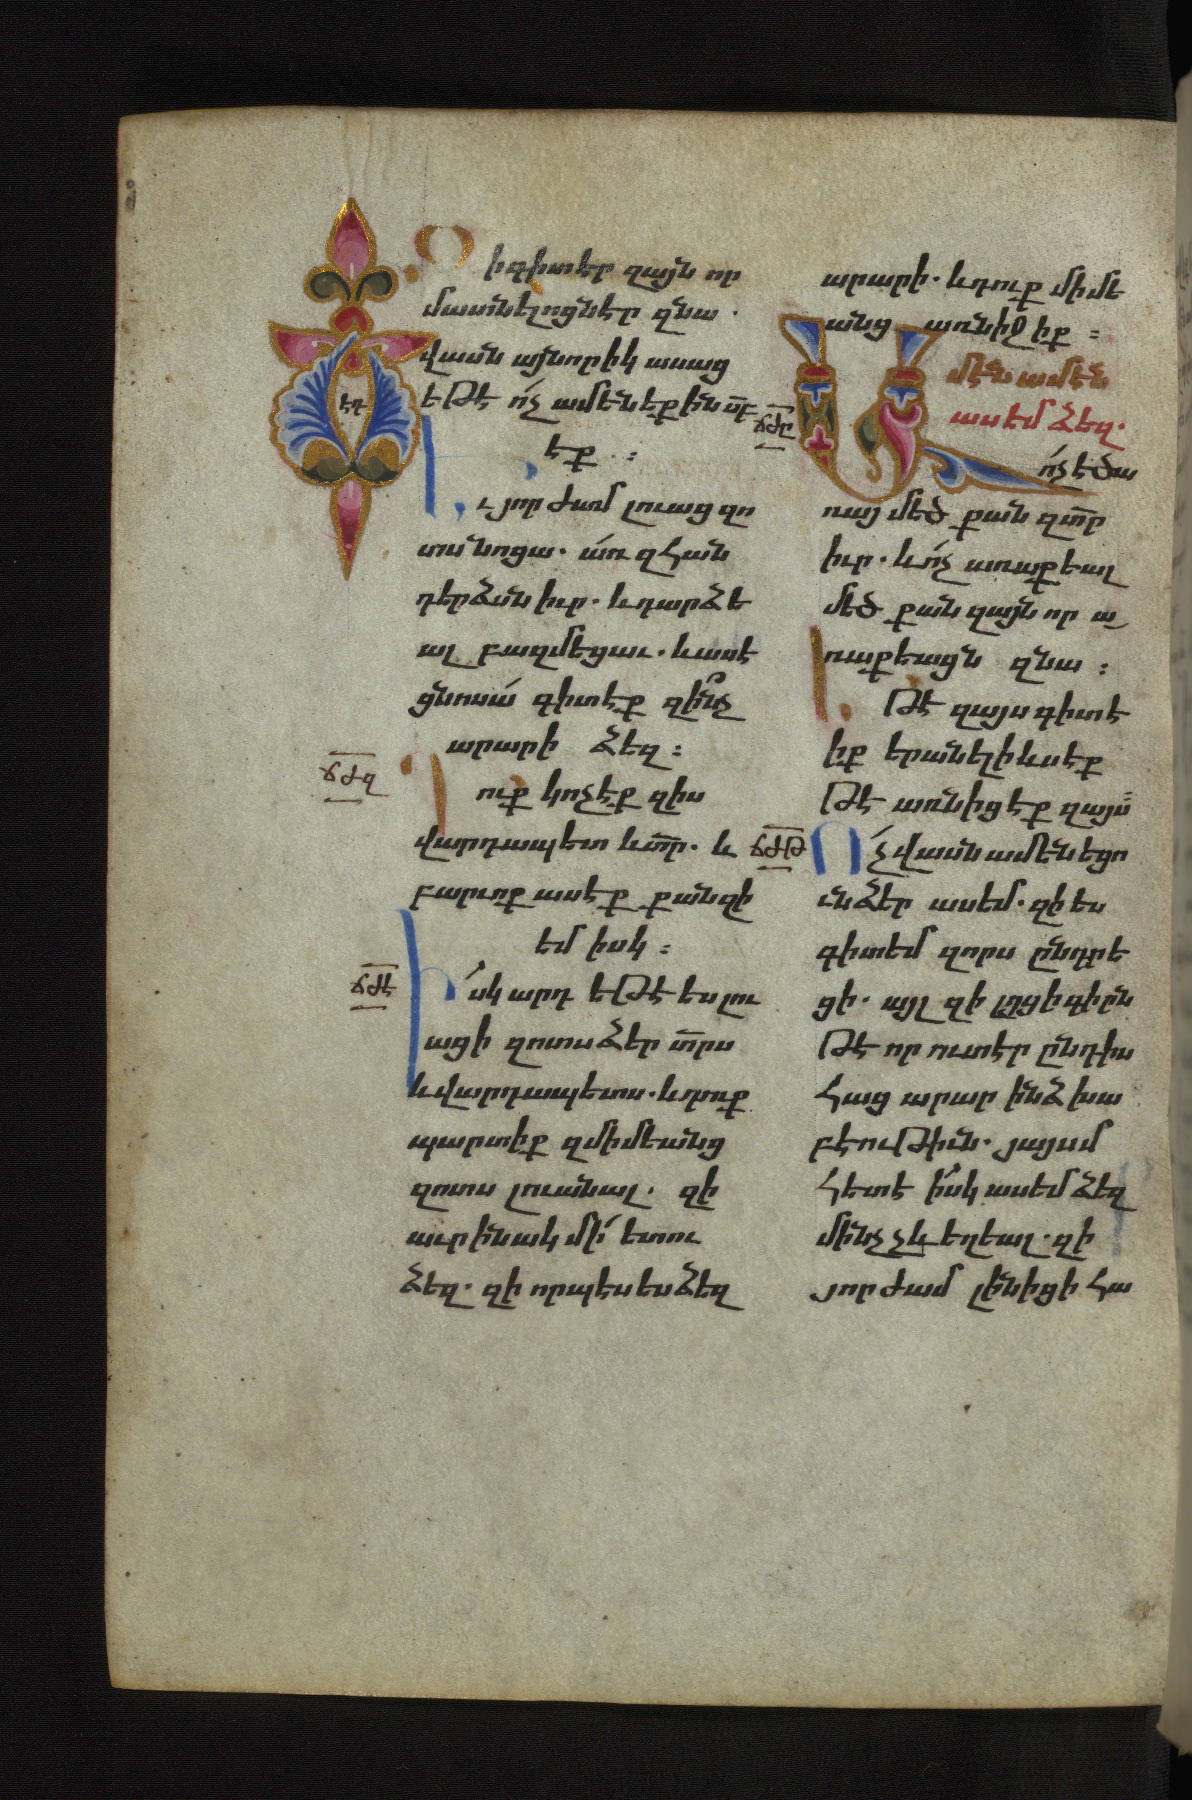 Զի գիտէր զայն որ
մատնելոցն էր զնա .
վասն այնորիկ ասաց
եթէ ոչ ամենեքին սբ
եք :
Եւ յորժամ լուաց զո
տս նոցա. առ զհան
դերձսն իւր. և դարձե
ալ բազմեցաւ. և ասէ
ցնոսա գիտէք զինչ
արարի ձեզ :
ճժզ
Դուք կոչէք զիս
վարդապետ և տր. և
բարւոք ասէք քանզի
եմ իսկ :
ճժէ
Իսկ արդ եթէ ես լու
ացի զոտս ձեր տրս
և վարդապետս. և դուք
պարտիք զմիմեանց
զոտս լուանալ. զի
աւրինակ մի ետու
ձեզ. զի որպէս ես ձեզ
արարի. և դուք միմե
անց առնիջիք :
ճժը
Ամէն ամէն
ասեմ ձեզ.
ոչ է ծա
ռայ մեծ քան զտր
իւր. և ոչ առաքեալ
մեծ քան զայն որ ա
ռաքեացն զնա :
Եթէ զայս գիտէ
իք երանելի ևս էք
թէ առնիցէք զայս :
ճժթ
Ոչ վասն ամենեցո
ւն ձեր ասեմ. զի ես
գիտեմ զորս ընտրե
ցի. այլ զի լցցի գիրն
թէ որ ուտէր ընդիս
հաց արար ինձ խա
բէութիւն. յայսմ
հետէ իսկ ասեմ ձեզ
մինչ չև եղեալ. զի
յորժամ լինիցի հա